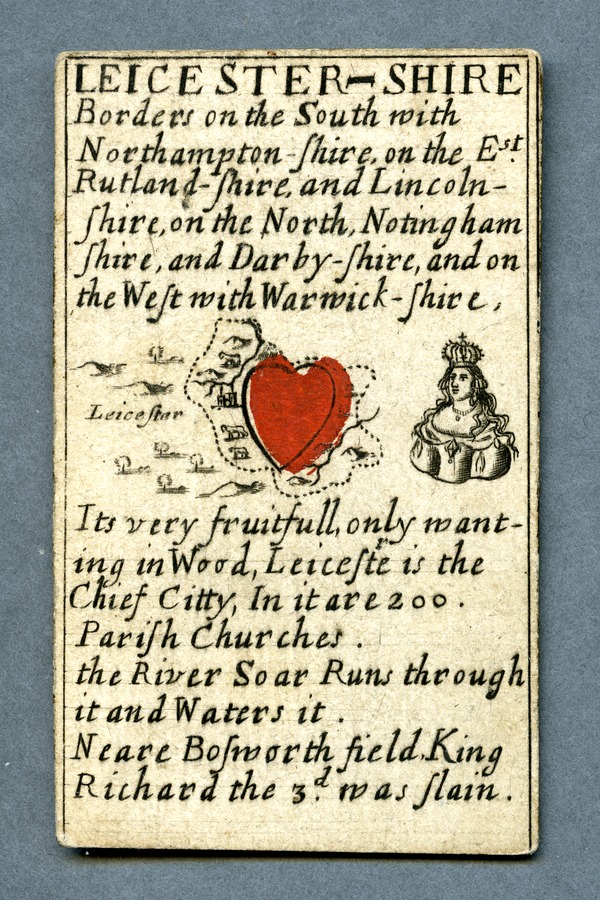 LEICESTER-SHIRE
Borders on the South with
Northampton-ſhire, on the Eſt.
Rutland-ſhire, and Lincoln-
ſhire, on the North, Notingham
ſhire, and Darby-ſhire, and on
the Weſt with Warwick-ſhire,
Leiceſtar
Its very fruitfull, only want-
ing in Wood, Leiceſter is the
Chief Citty, In it are 200.
Pariſh Churches.
the River Soar Runs through
it and Waters it.
Neare Boſworth field, King
Richard the 3.d was ſlain.